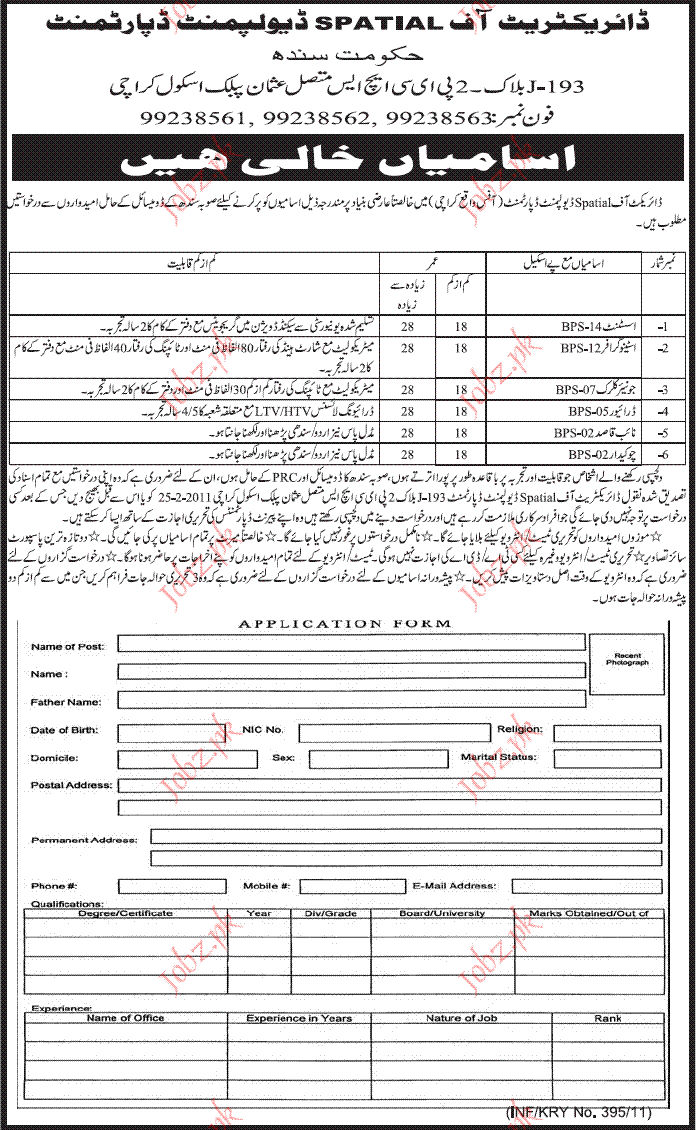 ڈائریکٹریٹ آف SPATIAL ڈیولپمنٹ ڈپارٹمنٹ
حکومت سندھ
193-J بلاک ۔ 2 پی ای سی ایچ ایس متصل عثمان پبلک اسکول کراچی
فون نمبر: 99238563, 99238562, 99238561
اسامیاں خالی ہیں
ڈائریکٹ آف Spatial ڈیولپمنٹ ڈپارٹمنٹ (آفس واقع کراچی) میں خالصتاً عارضی بنیاد پر مندرجہ ذیل اسامیوں کو پر کرنے کیلئے صوبہ سندھ کے ڈومیسائل کے حامل امیدواروں سے درخواستیں
مطلوب ہیں۔
نمبر شمار اسامیاں مع پے اسکیل عمر کم از کم قابلیت
کم از کم زیادہ سے زیادہ
1- اسسٹنٹ BPS-14 18 28 تسلیم شدہ یونیورسٹی سے سیکنڈ ڈویژن میں گریجویٹس مع دفتر کے کام کا 2 سالہ تجربہ۔
2- اسٹینوگرافر BPS-12 18 28 میٹریکولیٹ مع شارٹ ہینڈ کی رفتار 80 الفاظ فی منٹ اور ٹائپنگ کی رفتار 40 الفاظ فی منٹ مع دفتر کے کام
کا 2 سالہ تجربہ۔
3- جونیئر کلرک BPS-07 18 28 میٹریکولیٹ مع ٹائپنگ کی رفتار کم از کم 30 الفاظ فی منٹ اور دفتر کے کام کا 2 سالہ تجربہ۔
4- ڈرائیور BPS-05 18 28 ڈرائیونگ لائسنس LTV/HTV مع متعلقہ شعبہ کا 4/5 سالہ تجربہ۔
5- نائب قاصد BPS-02 18 28 مڈل پاس نیز اردو/سندھی پڑھنا اور لکھنا جانتا ہو۔
6- چوکیدار BPS-02 18 28 مڈل پاس نیز اردو/سندھی پڑھنا اور لکھنا جانتا ہو۔
دلچسپی رکھنے والے اشخاص جو قابلیت اور تجربہ پر باقاعدہ طور پر پورا اترتے ہوں، صوبہ سندھ کا ڈومیسائل اور PRC کے حامل ہوں، ان کے لئے ضروری ہے کہ وہ اپنی درخواستیں مع تمام اسناد کی
تصدیق شدہ نقول ڈائریکٹریٹ آف Spatial ڈیولپمنٹ ڈپارٹمنٹ 193-J بلاک 2 پی ای سی ایچ ایس متصل عثمان پبلک اسکول کراچی 25-2-2011 کو یا اس سے قبل بھیج دیں جس کے بعد کسی
درخواست پر توجہ نہیں دی جائے گی جو افراد سرکاری ملازمت کر رہے ہیں اور درخواست دینے میں دلچسپی رکھتے ہیں وہ اپنے پیرنٹ ڈپارٹمنٹس کی تحریری اجازت کے ساتھ ایسا کر سکتے ہیں۔
☆ موزوں امیدواروں کو تحریری ٹیسٹ/انٹرویو کیلئے بلایا جائے گا۔ ☆ نامکمل درخواستوں پر غور نہیں کیا جائے گا۔ ☆ خالصتاً میرٹ پر تمام اسامیاں پر کی جائیں گی۔ ☆ دو تازہ ترین پاسپورٹ
سائز تصاویر ☆ تحریری ٹیسٹ/انٹرویو وغیرہ کیلئے ٹی اے/ڈی اے کی اجازت نہیں ہوگی۔ ٹیسٹ/انٹرویو کے لئے تمام امیدواروں کو اپنے اخراجات پر حاضر ہونا ہوگا۔ ☆ درخواست گزاروں کے لئے
ضروری ہے کہ وہ انٹرویو کے وقت اصل دستاویزات پیش کریں۔ ☆ پیشہ ورانہ اسامیوں کے لئے درخواست گزاروں کے لئے ضروری ہے کہ وہ 3 تحریری حوالہ جات فراہم کریں جن میں سے کم از کم دو
پیشہ ورانہ حوالہ جات ہوں۔
APPLICATION FORM
Name of Post:
Recent Photograph
Name :
Father Name:
Date of Birth: NIC No. Religion:
Domicile: Sex: Marital Status:
Postal Address:
Permanent Address:
Phone #: Mobile #: E-Mail Address:
Qualifications:
Degree/Certificate Year Div/Grade Board/University Marks Obtained/Out of
Experience:
Name of Office Experience in Years Nature of Job Rank
(INF/KRY No. 395/11)
Jobz.pk